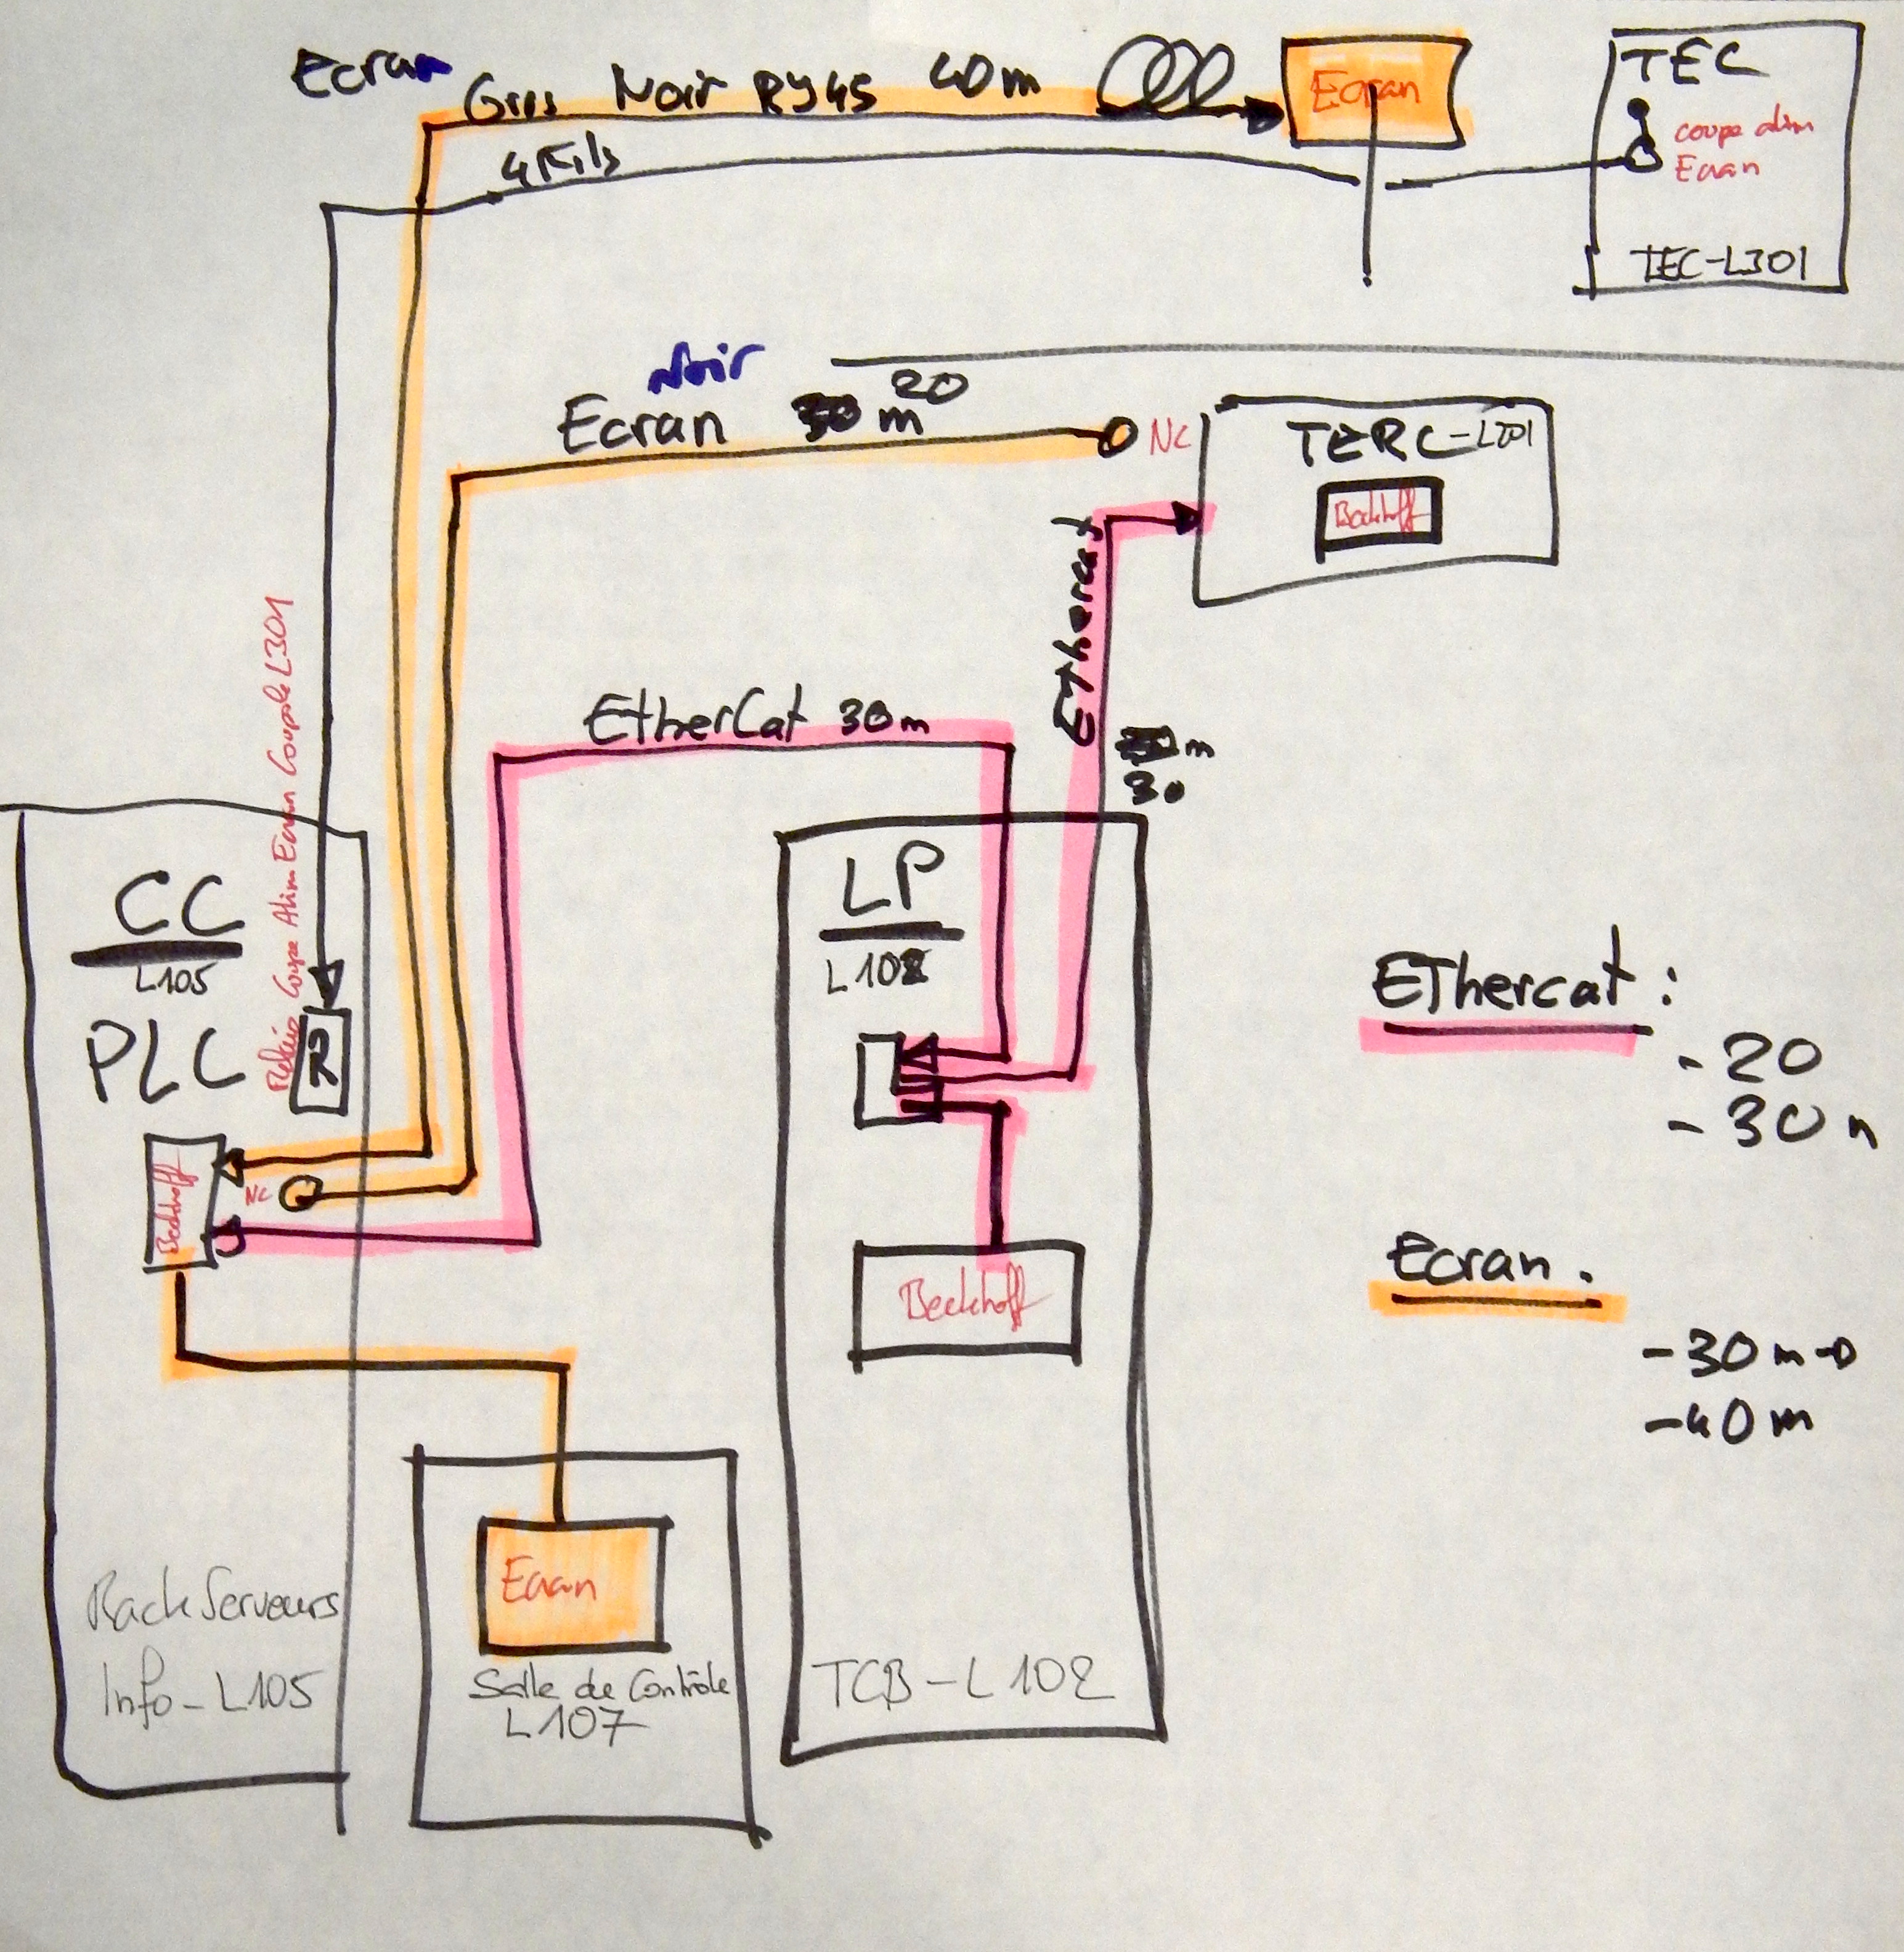 Ecran
Gris Noir RJ45 40m
Ecran
TEC
coupe alim
Ecran
4 Fils
TEC-L301
Noir
20
Ecran m
NC
TERC-L201
Beckhoff
Ethercat
EtherCat 30m
m
30
Relais Coupe Alim Ecran Coupole L301
CC
L105
PLC
R
LP
L102
Beckhoff
NC
Beckhoff
Ethercat :
- 20
- 30 m
Ecran.
- 30 m
- 40 m
Ecran
Salle de Contrôle
L107
Rack Serveurs
Info - L105
TCB - L102